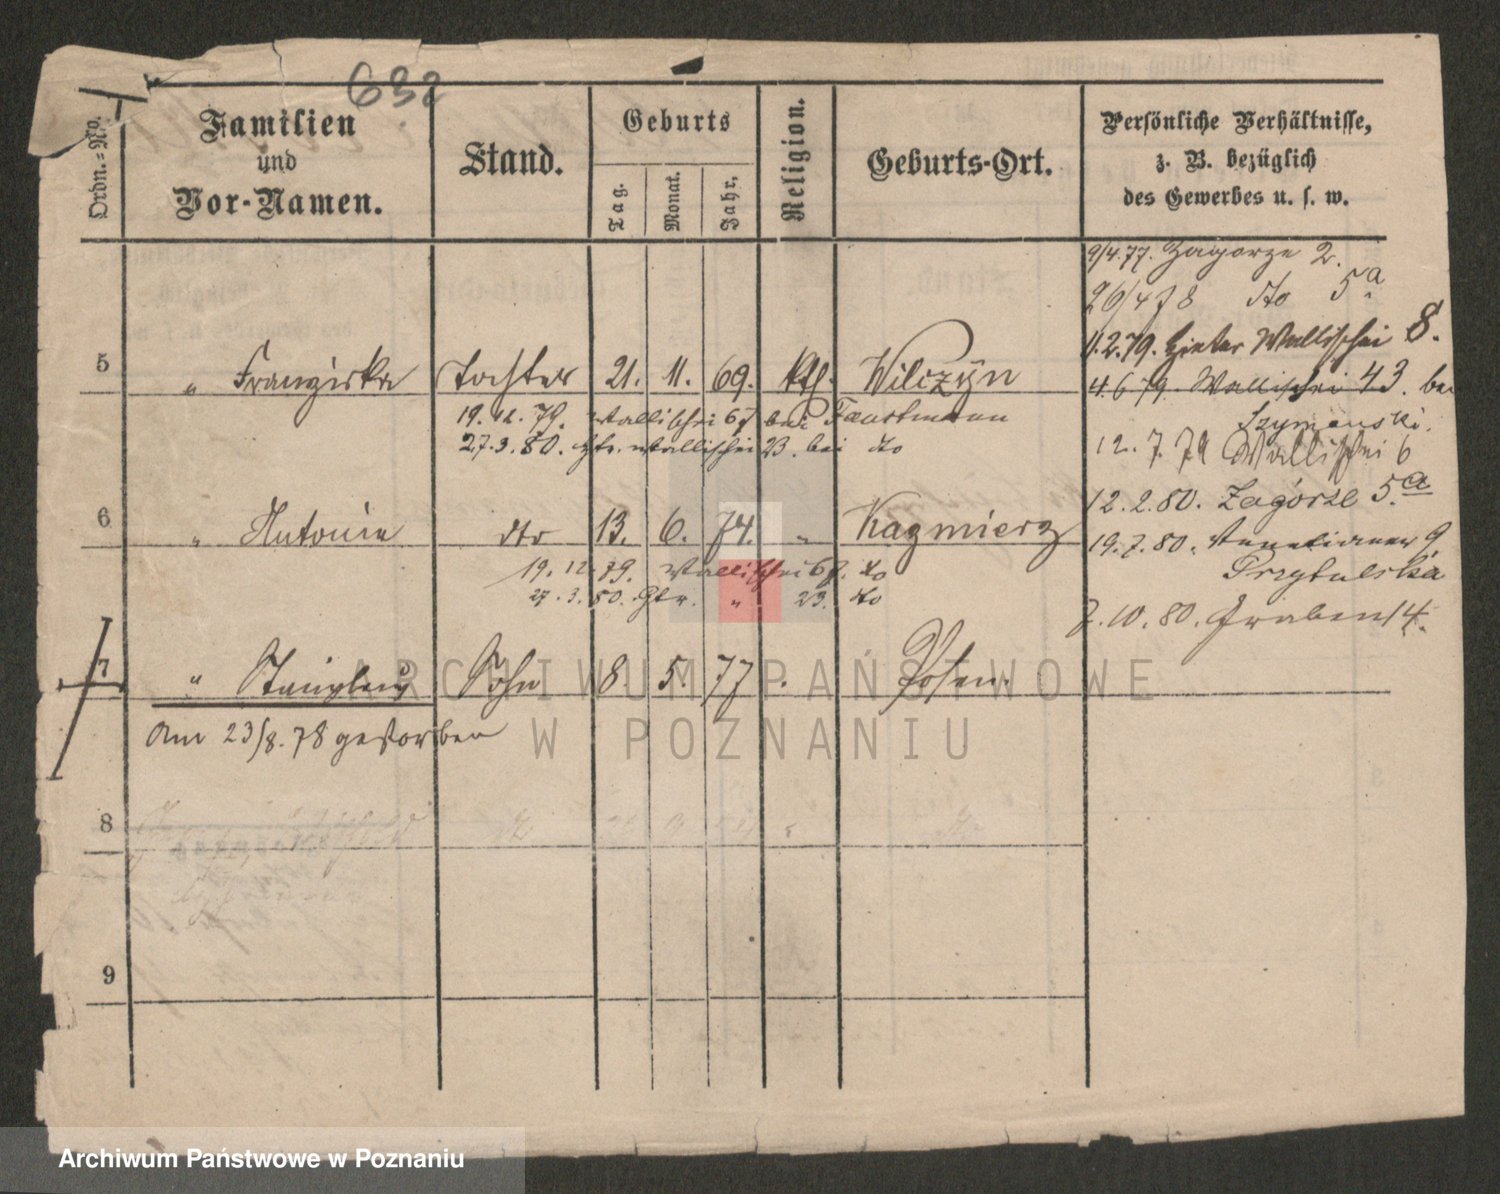 632
Ordn.=No.
Familien
und
Vor-Namen.
Stand.
Geburts
Tag.
Monat.
Jahr.
Religion.
Geburts-Ort.
Persönliche Verhältnisse,
z. B. bezüglich
des Gewerbes u. s. w.
9/4.77. Zagorze 2.
26/4 78 dto 5a
11.2.79. Hinter Wallischei 8.
5 " Franziska Tochter 21. 11. 69. kth. Wilczyn
4.6.79. Wallischei 43. bei
Szymanski.
19.12.79. Wallischei 67 bei Faustmann
27.3.80. Htr. Wallischei 23. bei dto
12.7.79 Wallischei 6
12.2.80. Zagórze 5.a
6 " Antonie dto 13. 6. 74. " Kazmierz
19.7.80. Venetianer 9.
Przytulska
19.12.79. Wallischei 67. do
27.3.80. Htr. " 23. dto
7.10.80. Graben 14.
7 " Stanislaus Sohn 8. 5. 77 . Posen.
Am 23/8.78 gestorben
8
9
ARCHIWUM PAŃSTWOWE
W POZNANIU
Archiwum Państwowe w Poznaniu